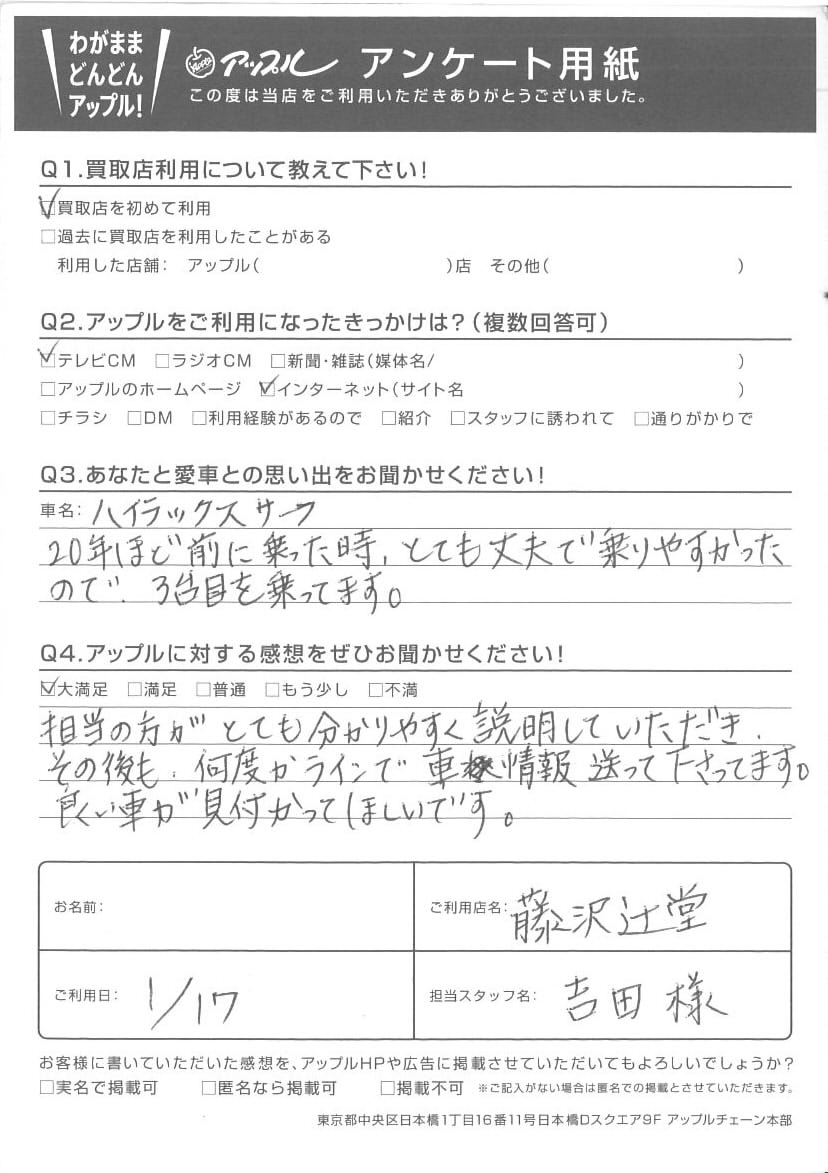 わがまま
どんどん
アップル!
アップル アンケート用紙
この度は当店をご利用いただきありがとうございました。
Q1.買取店利用について教えて下さい!
☑買取店を初めて利用
□過去に買取店を利用したことがある
利用した店舗: アップル( )店 その他( )
Q2.アップルをご利用になったきっかけは?(複数回答可)
☑テレビCM □ラジオCM □新聞・雑誌(媒体名/ )
□アップルのホームページ ☑インターネット(サイト名 )
□チラシ □DM □利用経験があるので □紹介 □スタッフに誘われて □通りがかりで
Q3.あなたと愛車との思い出をお聞かせください!
車名: ハイラックスサーフ
20年ほど前に乗った時、とても丈夫で乗りやすかった
ので、3台目を乗ってます。
Q4.アップルに対する感想をぜひお聞かせください!
☑大満足 □満足 □普通 □もう少し □不満
担当の方がとても分かりやすく説明していただき、
その後も、何度かラインで車情報送って下さってます。
良い車が見付かってほしいです。
お名前:
ご利用店名: 藤沢辻堂
ご利用日: 1/17
担当スタッフ名: 吉田様
お客様に書いていただいた感想を、アップルHPや広告に掲載させていただいてもよろしいでしょうか?
□実名で掲載可 □匿名なら掲載可 □掲載不可 ※ご記入がない場合は匿名での掲載とさせていただきます。
東京都中央区日本橋1丁目16番11号日本橋Dスクエア9F アップルチェーン本部